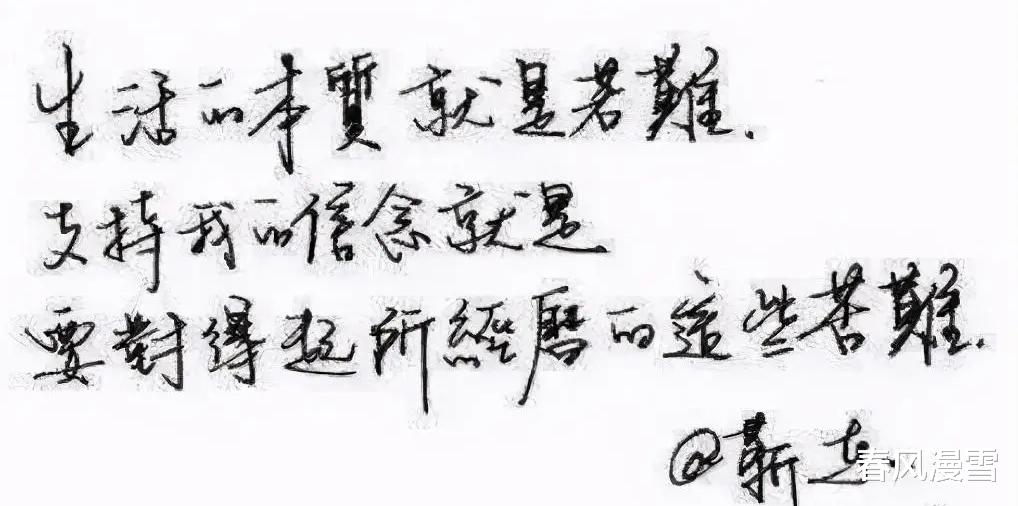 生活的本質就是苦難.
支持我的信念就是
要對得起所經歷的這些苦難.
@靳
春风漫雪